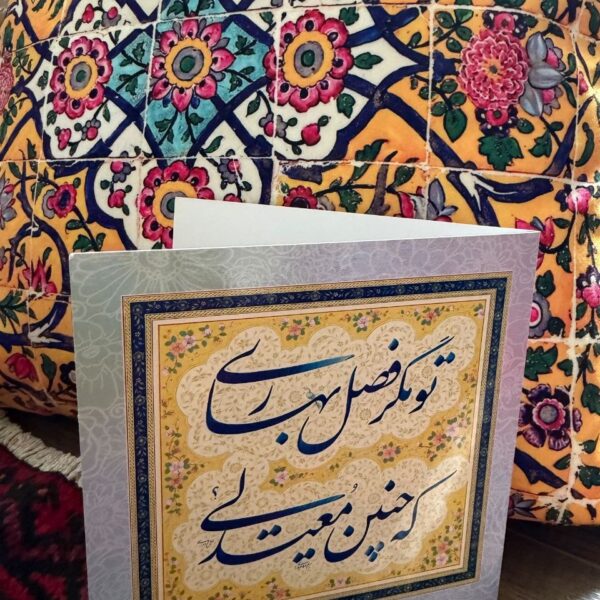 تو مگر فصل بهاری
که چنین مُعتدلی؟